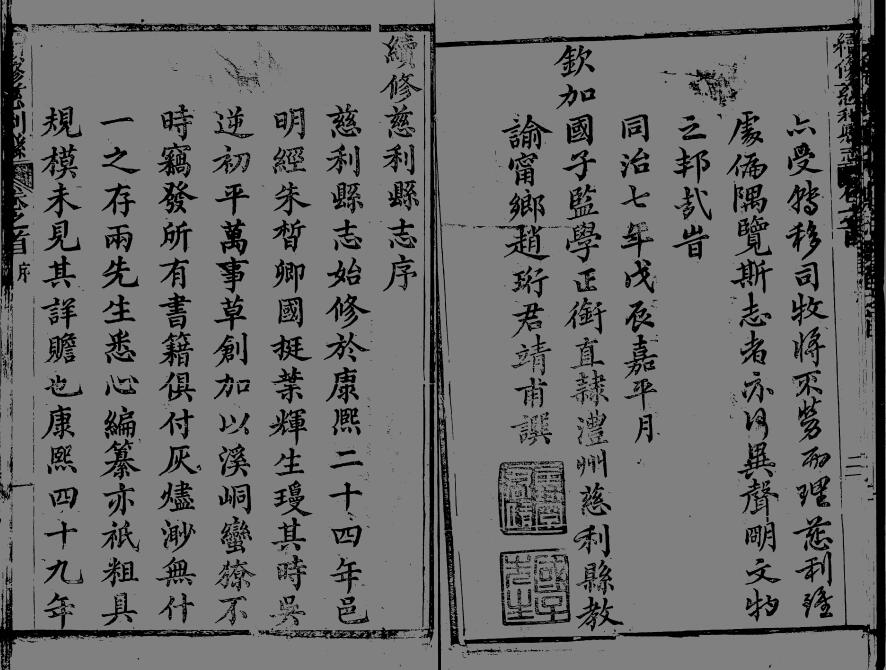 亦受龔移司牧將不勞而理慈利雖
處偏隅覽斯志者亦何異聲明文物
之邦哉旹
同治七年戊辰嘉平月
欽加國子監學正銜直隸澧州慈利縣教
諭甯鄉趙珩君靖甫譔
續修慈利縣志
卷之首
二
續修慈利縣志序
慈利縣志始修於康熙二十四年邑
明經朱晳卿國挺葉輝生瓊其時吳
逆初平萬事草創加以溪峒蠻獠不
時竊發所有書籍俱付灰燼渺無什
一之存兩先生悉心編纂亦祇粗具
規模未見其詳贍也康熙四十九年
修慈利縣
卷之首
序